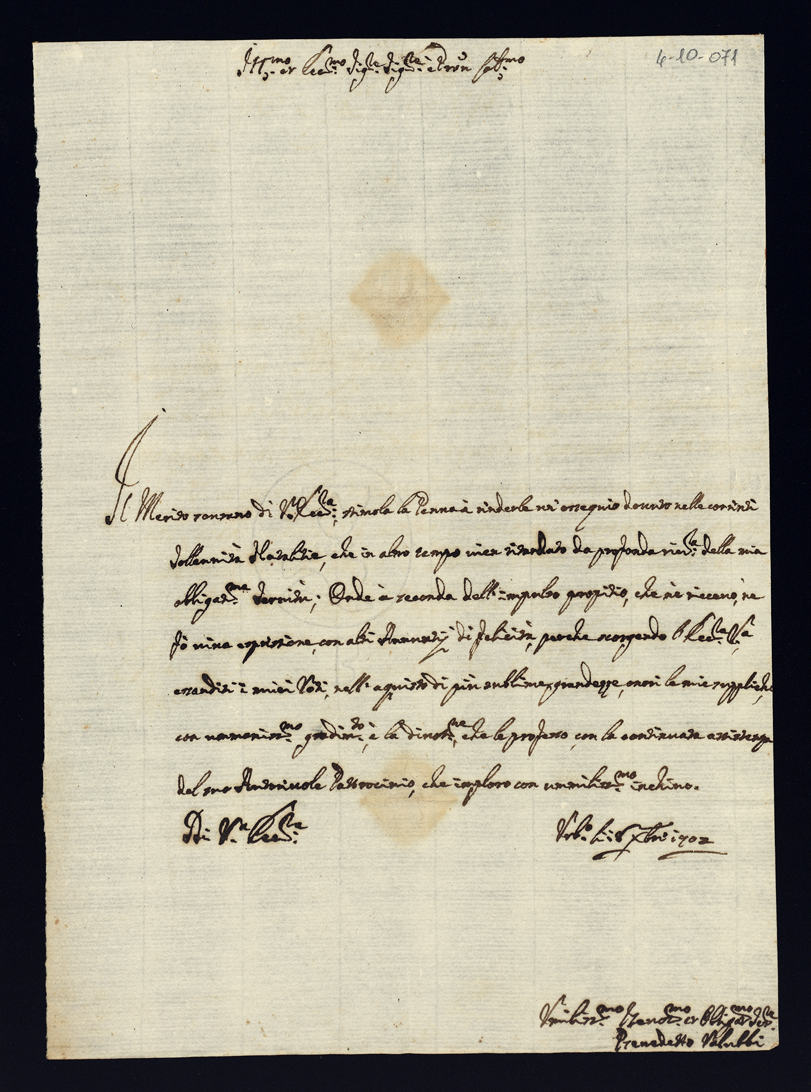 4-10-071
Ill.mo et Ecc.mo Sig.re Sig.re e Pron
Il Merito sovrano di V.a Ecc.za, stimola la Penna à renderle un ossequio dovuto nelle correnti
sollennità Natalitie, che in altro tempo vien ritardato da profonda della mia
obligat.ma servitù; Onde à seconda dell'impulso propitio, che nè ricevo, ne
fò viva espressione, con alti Annuntij di felicità, perche scorgendo l'Ecc.za V.a
essauditi i miei Voti, nell'aquisto di più sublime grandezze, onori le mie suppliche,
con um.mo gradim.to, e la divot.ne, che le professo, con la continuata assistenza
del suo Autorevole Patrocinio, che imploro con umiliss.mo inchino.
Di V.a Ecc.za
Urb.o li Xbre 1702
Umiliss.mo Devot.mo et Oblig.mo Ser.re
Benedetto